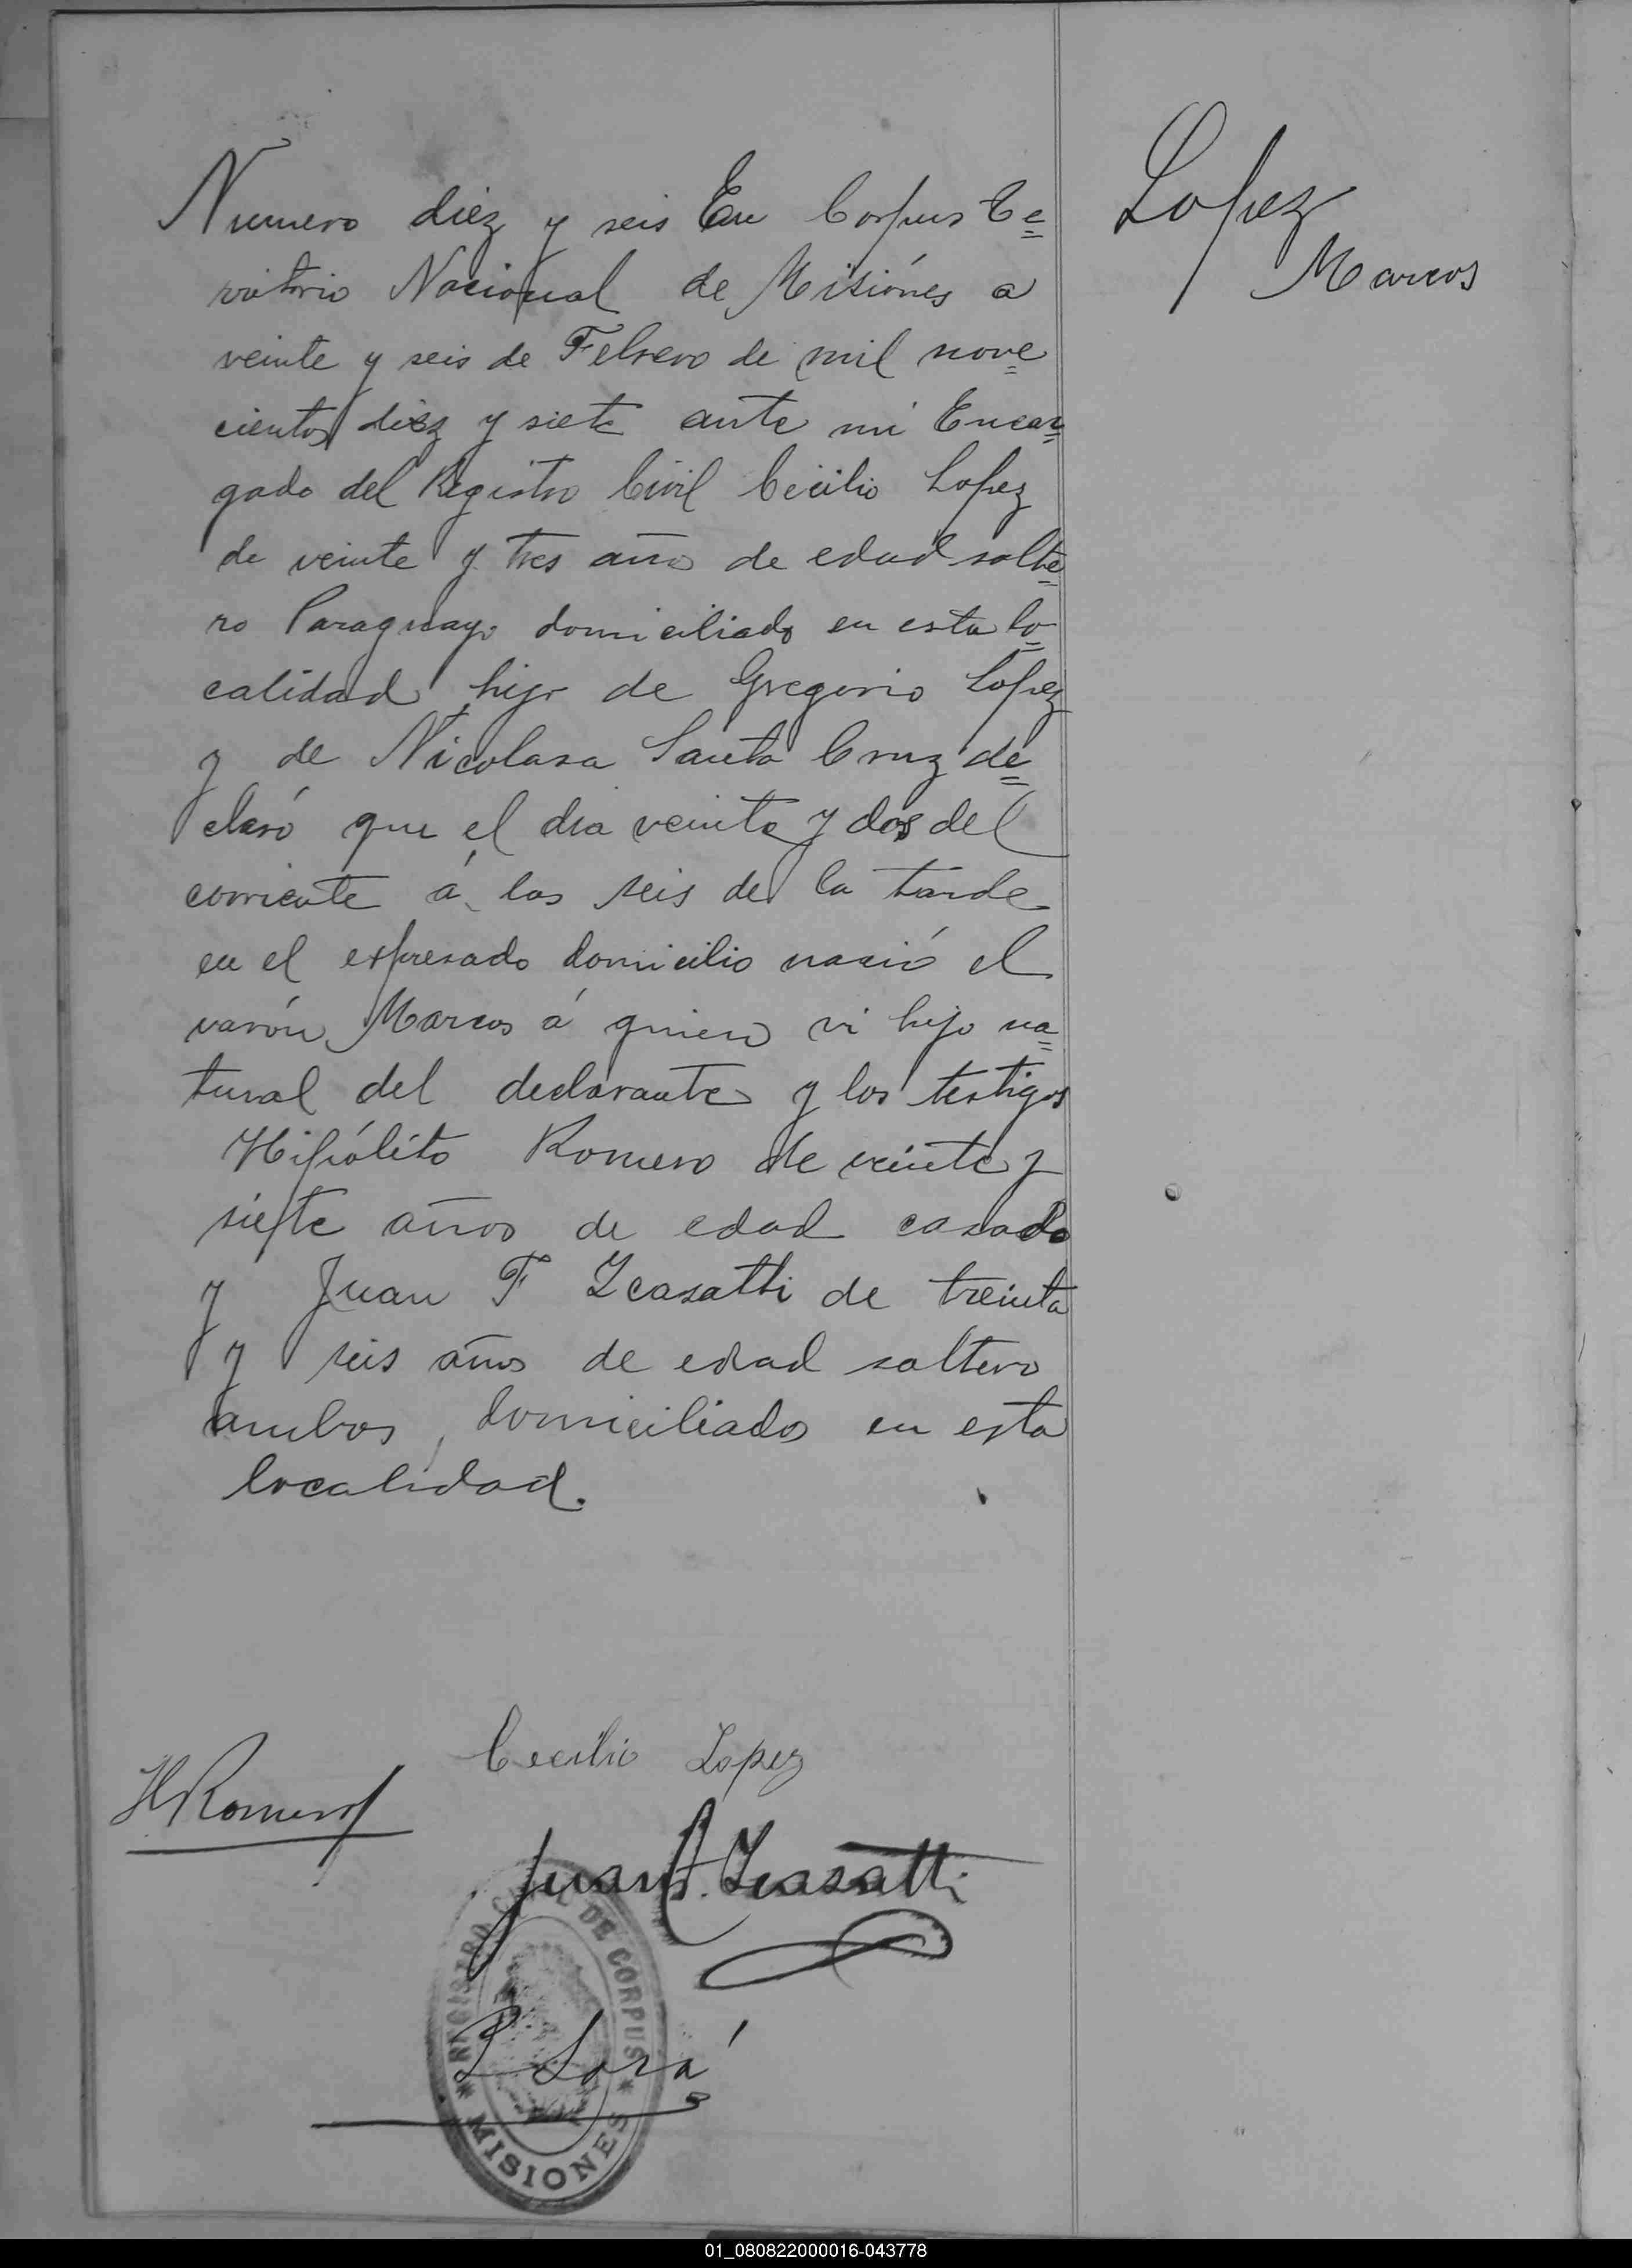 Numero diez y seis En Corpus Te=
rritorio Nacional de Misiónes a
veinte y seis de Febrero de mil nove=
cientos diez y siete ante mi Encar=
gado del Registro Civil Cecilio Lopez
de veinte y tres años de edad solte=
ro Paraguayo domiciliado en esta lo=
calidad hijo de Gregorio Lopez
y de Nicolasa Santa Cruz de=
claró que el dia veinte y dos del
corriente á las seis de la tarde
en el espresado domicilio nació el
varón Marcos á quien vi hijo na=
tural del declarante y los testigos
Hipólito Romero de veinte y
siete años de edad casado
y Juan F Icasatti de treinta
y seis años de edad soltero
ambos, domiciliados en esta
localidad.
Lopez
Marcos
Cecilio Lopez
H Romero
Juan F. Icasatti
REGISTRO CIVIL DE CORPUS
* MISIONES *
01_080822000016-043778